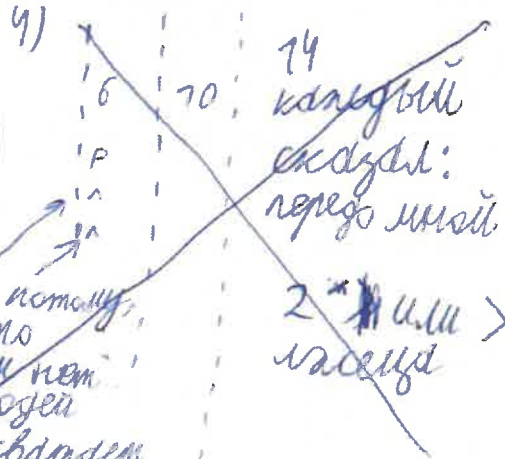 4)
6 10 14
каждый
сказал:
передо мной
2 или >
лжеца
потому
нет